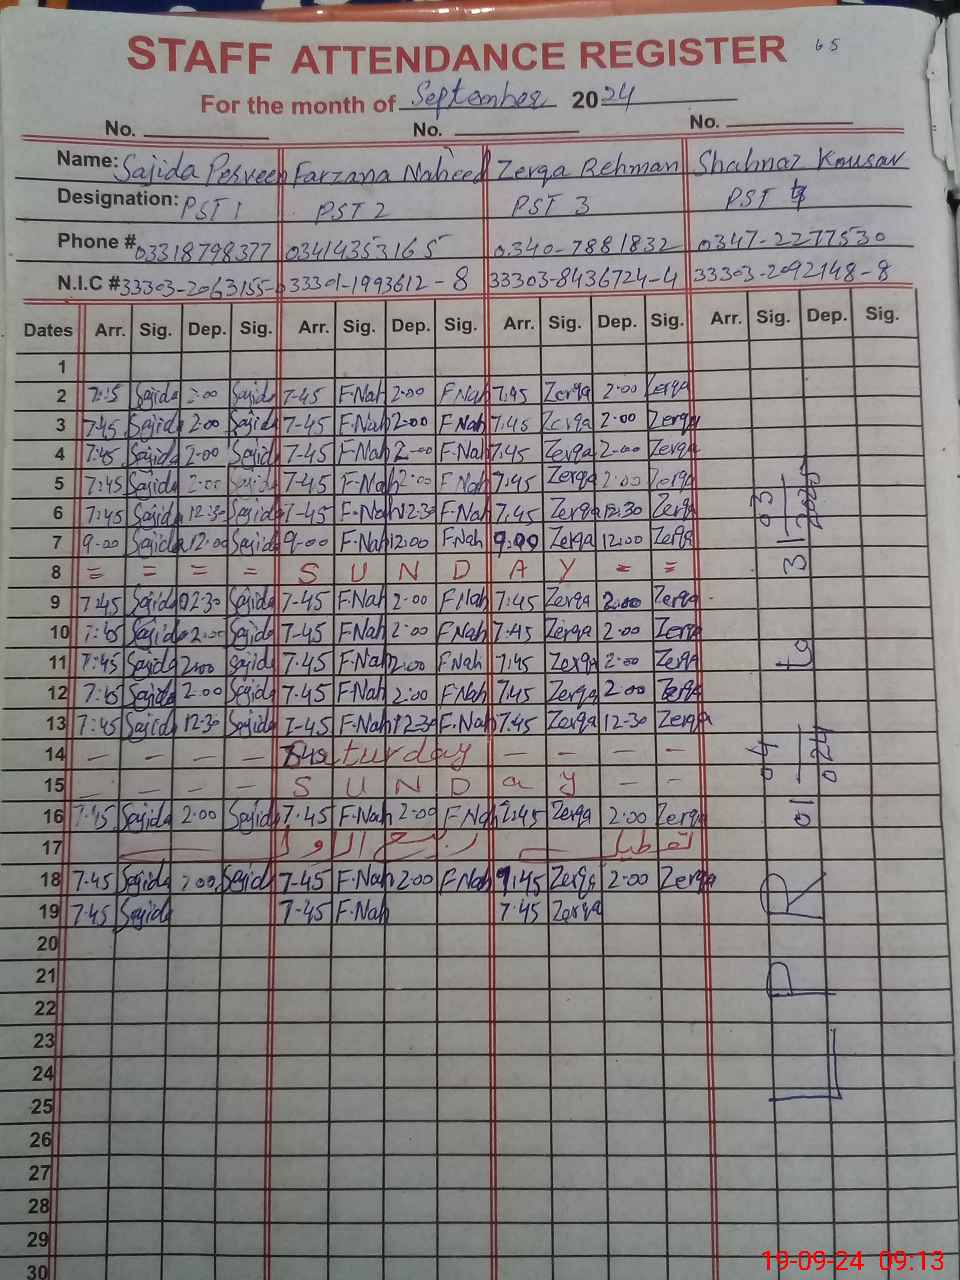 65
STAFF ATTENDANCE REGISTER
For the month of September 2024
No. No. No.
Name: Sajida Perveen Farzana Naheed Zerqa Rehman Shahnaz Kousar
Designation: PST 1 PST 2 PST 3 PST 4
Phone # 03318798377 03414353165 0340-7881832 0347-2277530
N.I.C # 33303-2063155- 33301-1993612-8 33303-8436724-4 33303-2092148-8
Dates Arr. Sig. Dep. Sig. Arr. Sig. Dep. Sig. Arr. Sig. Dep. Sig. Arr. Sig. Dep. Sig.
1
2 7:15 Sajida 2:00 Sajida 7-45 F.Nah 2:00 F Nah 7:45 Zerqa 2:00 Zerqa
3 7:45 Sajida 2:00 Sajida 7-45 F.Nah 2:00 F Nah 7:45 Zerqa 2:00 Zerqa
4 7:45 Sajida 2:00 Sajida 7-45 F.Nah 2:00 F.Nah 7:45 Zerqa 2:00 Zerqa
5 7:45 Sajida 2:00 Sajida 7-45 F.Nah 2:00 F Nah 7:45 Zerqa 2:00 Zerqa
6 7:45 Sajida 12:30 Sajida 7-45 F.Nah 12:30 F.Nah 7:45 Zerqa 12:30 Zerqa
7 9:00 Sajida 12:00 Sajida 9-00 F.Nah 12:00 F.Nah 9:00 Zerqa 12:00 Zerqa
8 = = = = S U N D A Y = =
9 7:45 Sajida 2:30 Sajida 7-45 F.Nah 2:00 F.Nah 7:45 Zerqa 2:00 Zerqa
10 7:45 Sajida 2:00 Sajida 7-45 F.Nah 2:00 F.Nah 7:45 Zerqa 2:00 Zerqa
11 7:45 Sajida 2:00 Sajida 7.45 F.Nah 2:00 F.Nah 7:45 Zerqa 2:00 Zerqa
12 7:45 Sajida 2:00 Sajida 7.45 F.Nah 2:00 F.Nah 7:45 Zerqa 2:00 Zerqa
13 7:45 Sajida 12:30 Sajida 7-45 F.Nah 12:30 F.Nah 7:45 Zerqa 12-30 Zerqa
14 - - - - Saturday - - - -
15 - - - - S U N D a y - -
16 7:45 Sajida 2:00 Sajida 7.45 F.Nah 2:00 F Nah 7:45 Zerqa 2:00 Zerqa
17 تعطیل ربیع الاول
18 7:45 Sajida 2:00 Sajida 7-45 F.Nah 2:00 F.Nah 7:45 Zerqa 2:00 Zerqa
19 7:45 Sajida 7-45 F.Nah 7:45 Zerqa
20
21
22
23
24
25
26
27
28
29
30
L P R 01-04-024 to 31-03-2025
19-09-24 09:13